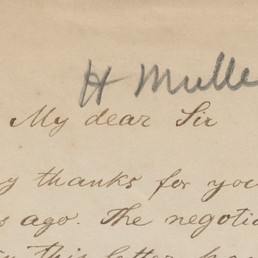 H Mulle
My dear Sir
y thanks for you
s ago. The negotia
this letter